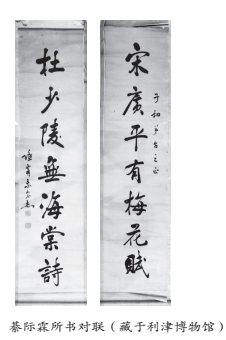 宋廣平有梅花賦
杜少陵無海棠詩
綦际霖所书对联（藏于利津博物馆）